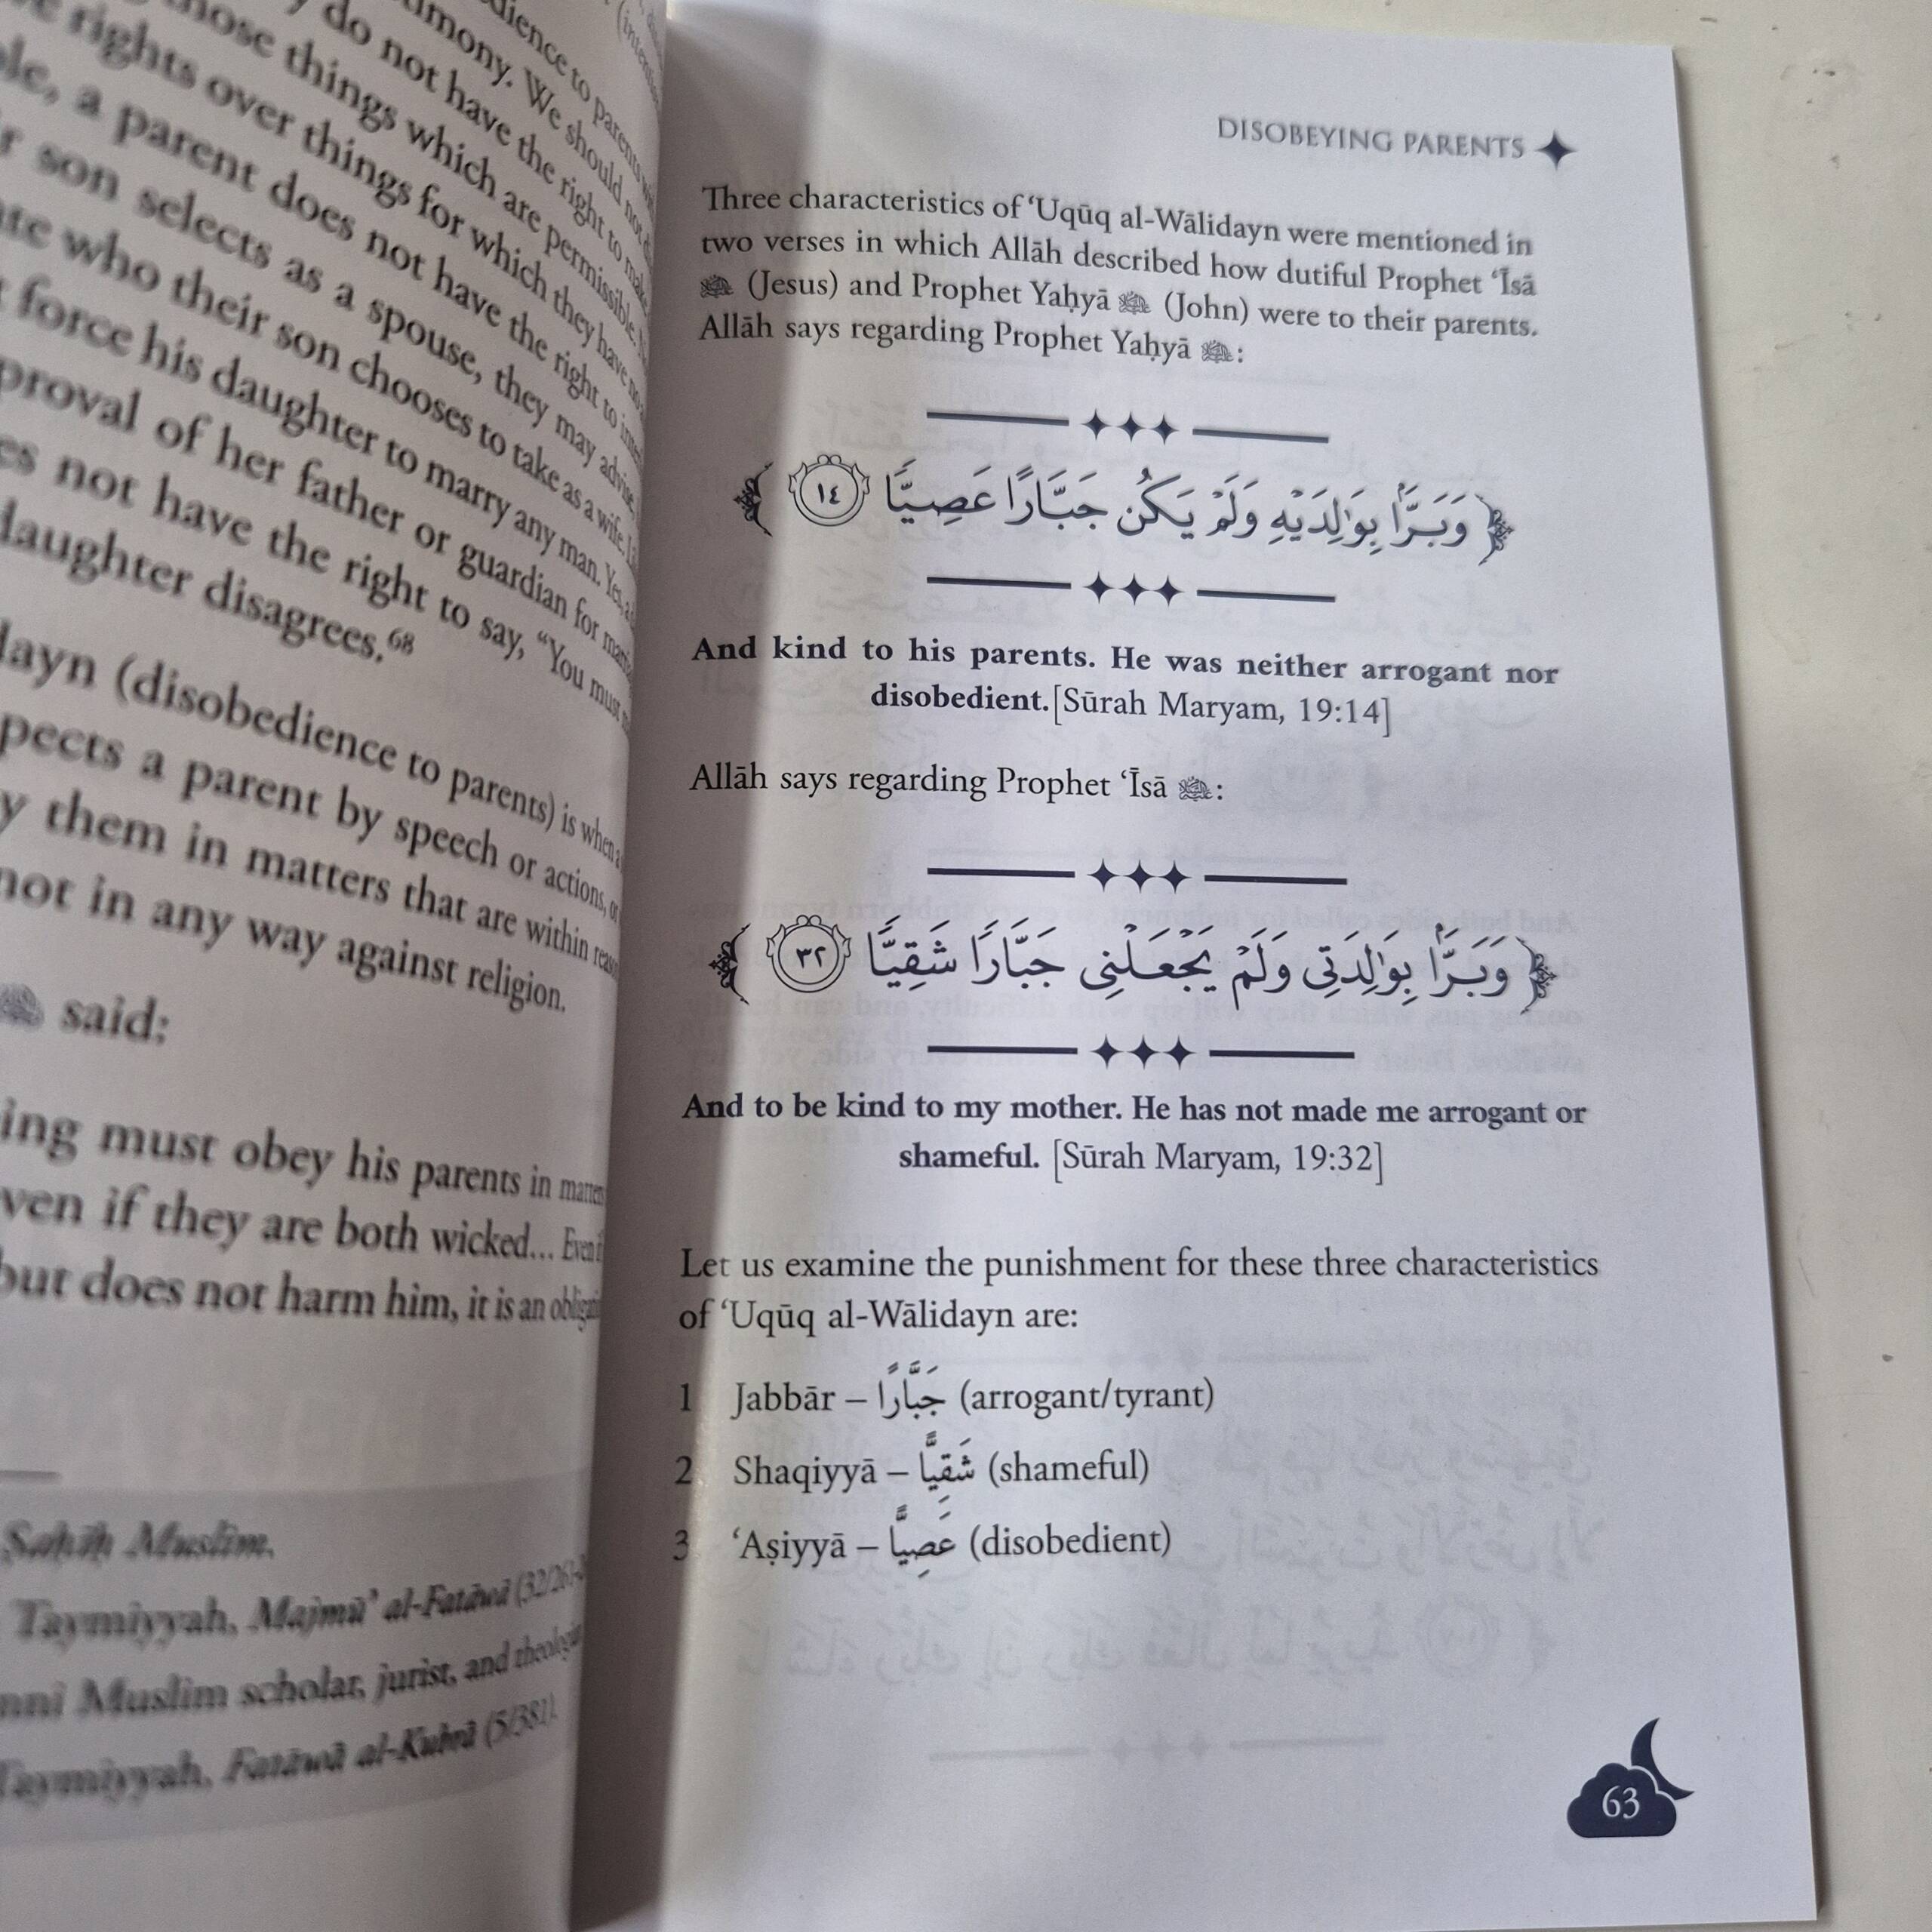 dience to parents
timony. We should not
y do not have the right to make
those things which are permissible.
rights over things for which they have no
a parent does not have the right to
son selects as a spouse, they may advise,
who their son chooses to take as a wife.
force his daughter to marry any man. Yes,
of her father or guardian for
not have the right to say, “You must
daughter disagrees.68
(disobedience to parents) is when
a parent by speech or actions, or
them in matters that are within
not in any way against religion.
said:
must obey his parents in
if they are both wicked... Even if
but does not harm him, it is an
Sahih Muslim.
Taymiyyah, Majmū’ al-Fatāwā
Muslim scholar, jurist, and
Taymiyyah, Fatāwā al-Kubrā (5/381).
DISOBEYING PARENTS
Three characteristics of ‘Uqūq al-Wālidayn were mentioned in
two verses in which Allāh described how dutiful Prophet ‘Īsā
(Jesus) and Prophet Yaḥyā (John) were to their parents.
Allāh says regarding Prophet Yaḥyā :
﴿ وَبَرًّۢا بِوَٰلِدَيْهِ وَلَمْ يَكُن جَبَّارًا عَصِيًّا ١٤ ﴾
And kind to his parents. He was neither arrogant nor
disobedient.[Sūrah Maryam, 19:14]
Allāh says regarding Prophet ‘Īsā :
﴿ وَبَرًّۢا بِوَٰلِدَتِى وَلَمْ يَجْعَلْنِى جَبَّارًا شَقِيًّا ٣٢ ﴾
And to be kind to my mother. He has not made me arrogant or
shameful. [Sūrah Maryam, 19:32]
Let us examine the punishment for these three characteristics
of ‘Uqūq al-Wālidayn are:
1 Jabbār – جَبَّارًا (arrogant/tyrant)
2 Shaqiyyā – شَقِيًّا (shameful)
3 ‘Aṣiyyā – عَصِيًّا (disobedient)
63